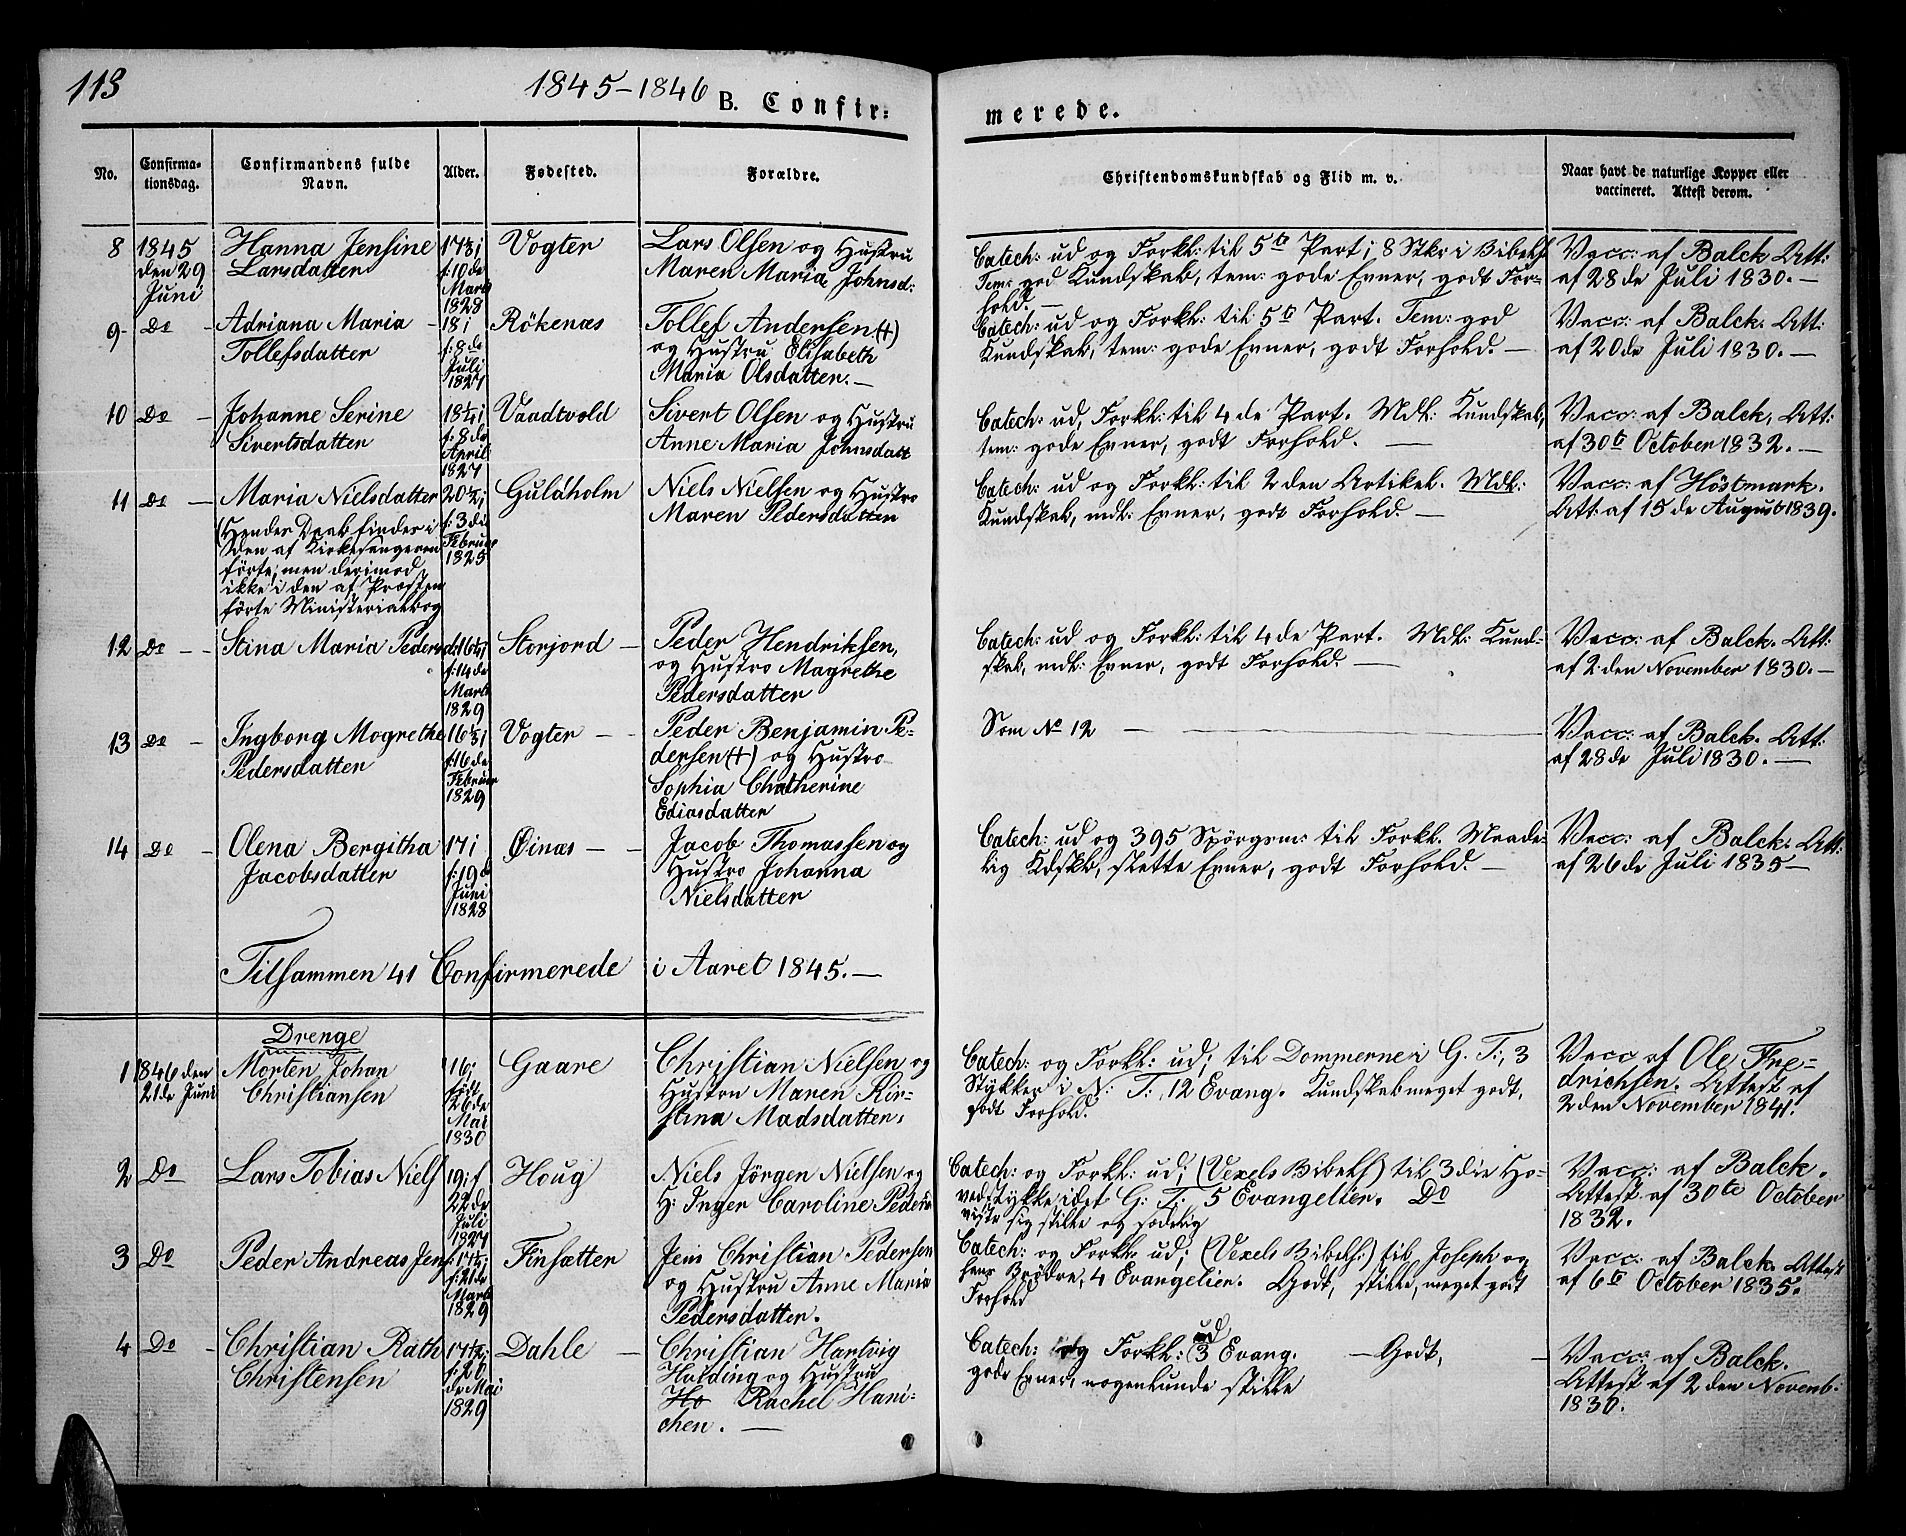 113
1845-1846
B. Confir=
merede.
No.
Confirma-
tionsdag.
Confirmandens fulde
Navn.
Alder.
Fødested.
Forældre.
Christendomskundskab og Flid m. v.
Naar havt de naturlige Kopper eller
vaccineret. Attest derom.
8 1845
den 29
Juni
Hanna Jensine
Larsdatter
f: 10 de
Marts
1828
Vogter
Lars Olsen og Hustru
Maren Maria Johnsd:
Catech: ud og Forkl: til 5te Part; 8 Stkr i Bibelh.
Tem: god Kundskab, tem: gode Evner, godt For-
hold. —
Vacc: af Balck. Att:
af 28 de Juli 1830. —
9 - Do -
Adriana Maria -
Tollefsdatter
18 i
f: 8 de
Juli
1827
Rökenæs
Tollef Andersen (+)
og Hustru Elisabeth
Maria Olsdatter. —
Catech: ud og Forkl: til 5te Part. Tem: god
Kundskab, tem: gode Evner, godt Forhold. —
Vacc: af Balck. Att:
af 20 de Juli 1830. —
10 Do -
Johanne Serine
Sivertsdatter
18 1/4 i
f: 8 de
April
1827
Vaadtvold
Sivert Olsen og Hustru
Anne Maria Johnsdatt
Catech: ud, Forkl: til 4 de Part. Mdl: Kundskab,
tem: gode Evner, godt Forhold. —
Vacc: af Balck. Att:
af 30te October 1832. —
11 Do -
Maria Nielsdatter
(Hendes Daab findes i
den af Kirkesangeren
förte, men derimod
ikke i den af Præsten
förte Ministerialbog
f: 3 die
Februar
1825
Guldholm
Niels Nielsen og Hustro
Maren Pedersdatter
Catech: ud og Forkl: til 2 den Artikel. Mdl:
Kundskab, mdl: Evner, godt Forhold. —
Vacc: af Höstmark.
Att: af 15 de August 1839.
12 Do - -
Stina Maria Pedersd:
16 1/4 i
f: 14 de
Marts
1829
Storjord -
Peder Hendriksen,
og Hustro Magrethe
Pedersdatter
Catech: ud og Forkl: til 4 de Part. Mdl: Kund-
skab, mdl: Evner, godt Forhold. —
Vacc: af Balck. Att:
af 2: den November 1830. —
13 Do -
Ingborg Mogrethe
Pedersdatter
f: 16 de
Februar
1829
Vogter - -
Peder Benjamin Pe-
dersen (+) og Hustro
Sophia Chatherine
Ediasdatter
Som No 12 —
Vacc: af Balck. Att:
af 28 de Juli 1830. —
14 Do -
Olena Bergitha
Jacobsdatter
17 i
f: 19 d
Juni
1828
Øinæs - -
Jacob Thomassen og
Hustro Johanna
Nielsdatter
Catech: ud og 395 Spörgsm: til Forkl. Maade-
lig Kdskb, slette Evner, godt Forhold. —
Vacc: af Balck. Att:
af 26 de Juli 1835 —
Tilsammen 41 Confirmerede i Aaret 1845. —
Drenge
1 1846 den
21 de Juni
Morten Johan
Christiansen
16 i
født
26 de
Mai
1830
Gaare
Christian Nielsen og
Hustru Maren Kir-
stina Madsdatter.
Catech: og Forkl: ud; til Dommerne i G. T:, 3
Stykker i N: T:, 12 Evang. Kundskab meget godt,
godt Forhold.
Vacc af Ole Fre-
drichsen. Attest af
2 den November 1841.
2 Do
Lars Tobias Niels
19 i f
22 de
Juli
1827
Houg
Niels Jörgen Nielsen og
H: Inger Caroline Peders
Catech: og Forkl: ud; (Vexels Bibelh) til 3 die Ho-
vedstykke i det G: T: 5 Evangelier. Do
viste sig stille og sædelig
Vacc: af Balck.
Attest af 30te October
1832.
3 Do
Peder Andreas Jens
f: 21 de
Marts
1829
Finsætter
Jens Christian Pedersen
og Hustru Anne Maria
Pedersdatter.
Catech: og Forkl: ud; (Vexels Bibelh:) til Joseph og
hans Brödre, 4 Evangelier. Godt, stille, meget godt
Forhold
Vacc: af Balck. Attest
af 6te October 1835.
4 Do -
Christian Rath
Christensen
17 1/12 i
f: 20
de Mai
1829
Dahle -
Christian Hartvig
Holding og Hustru
Ho Rachel Hani-
chen. —
Catech: og Forkl: ud 3 Evang. — Godt, —
gode Evner, nogenlunde stille
Vacc: af Balck.
Attest af 2 den Novemb.
1830.